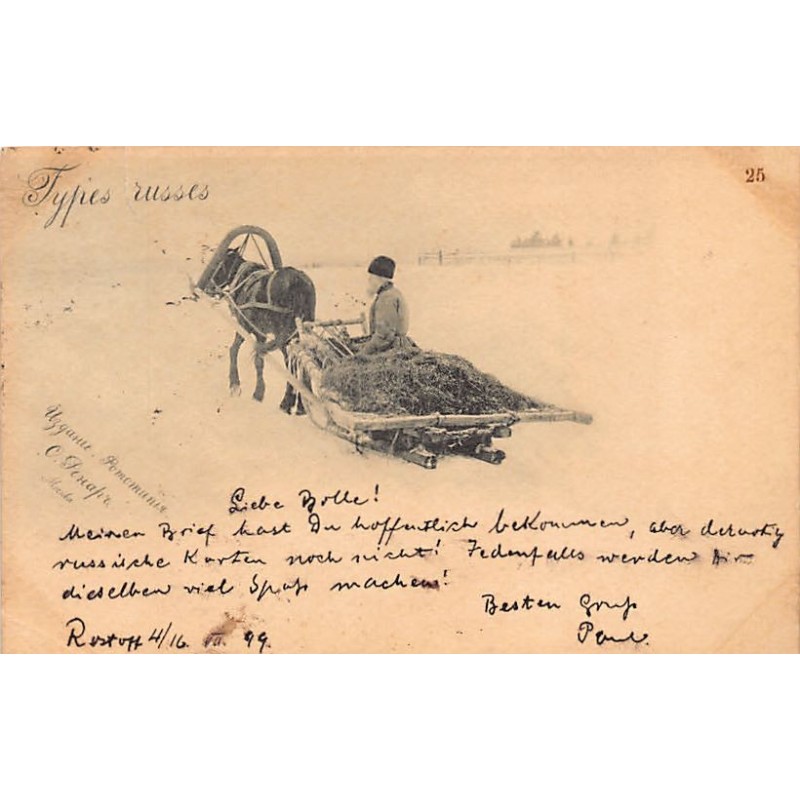 Types russes
25
Изданіе Фототипія
О. Ренаръ
Москва
Liebe Bolle!
Meinen Brief hast Du hoffentlich bekommen, aber derartig
russische Karten noch nicht! Jedenfalls werden Dir
dieselben viel Spaß machen!
Besten Gruß
Paul.
Rostoff 4/16. VII. 99.